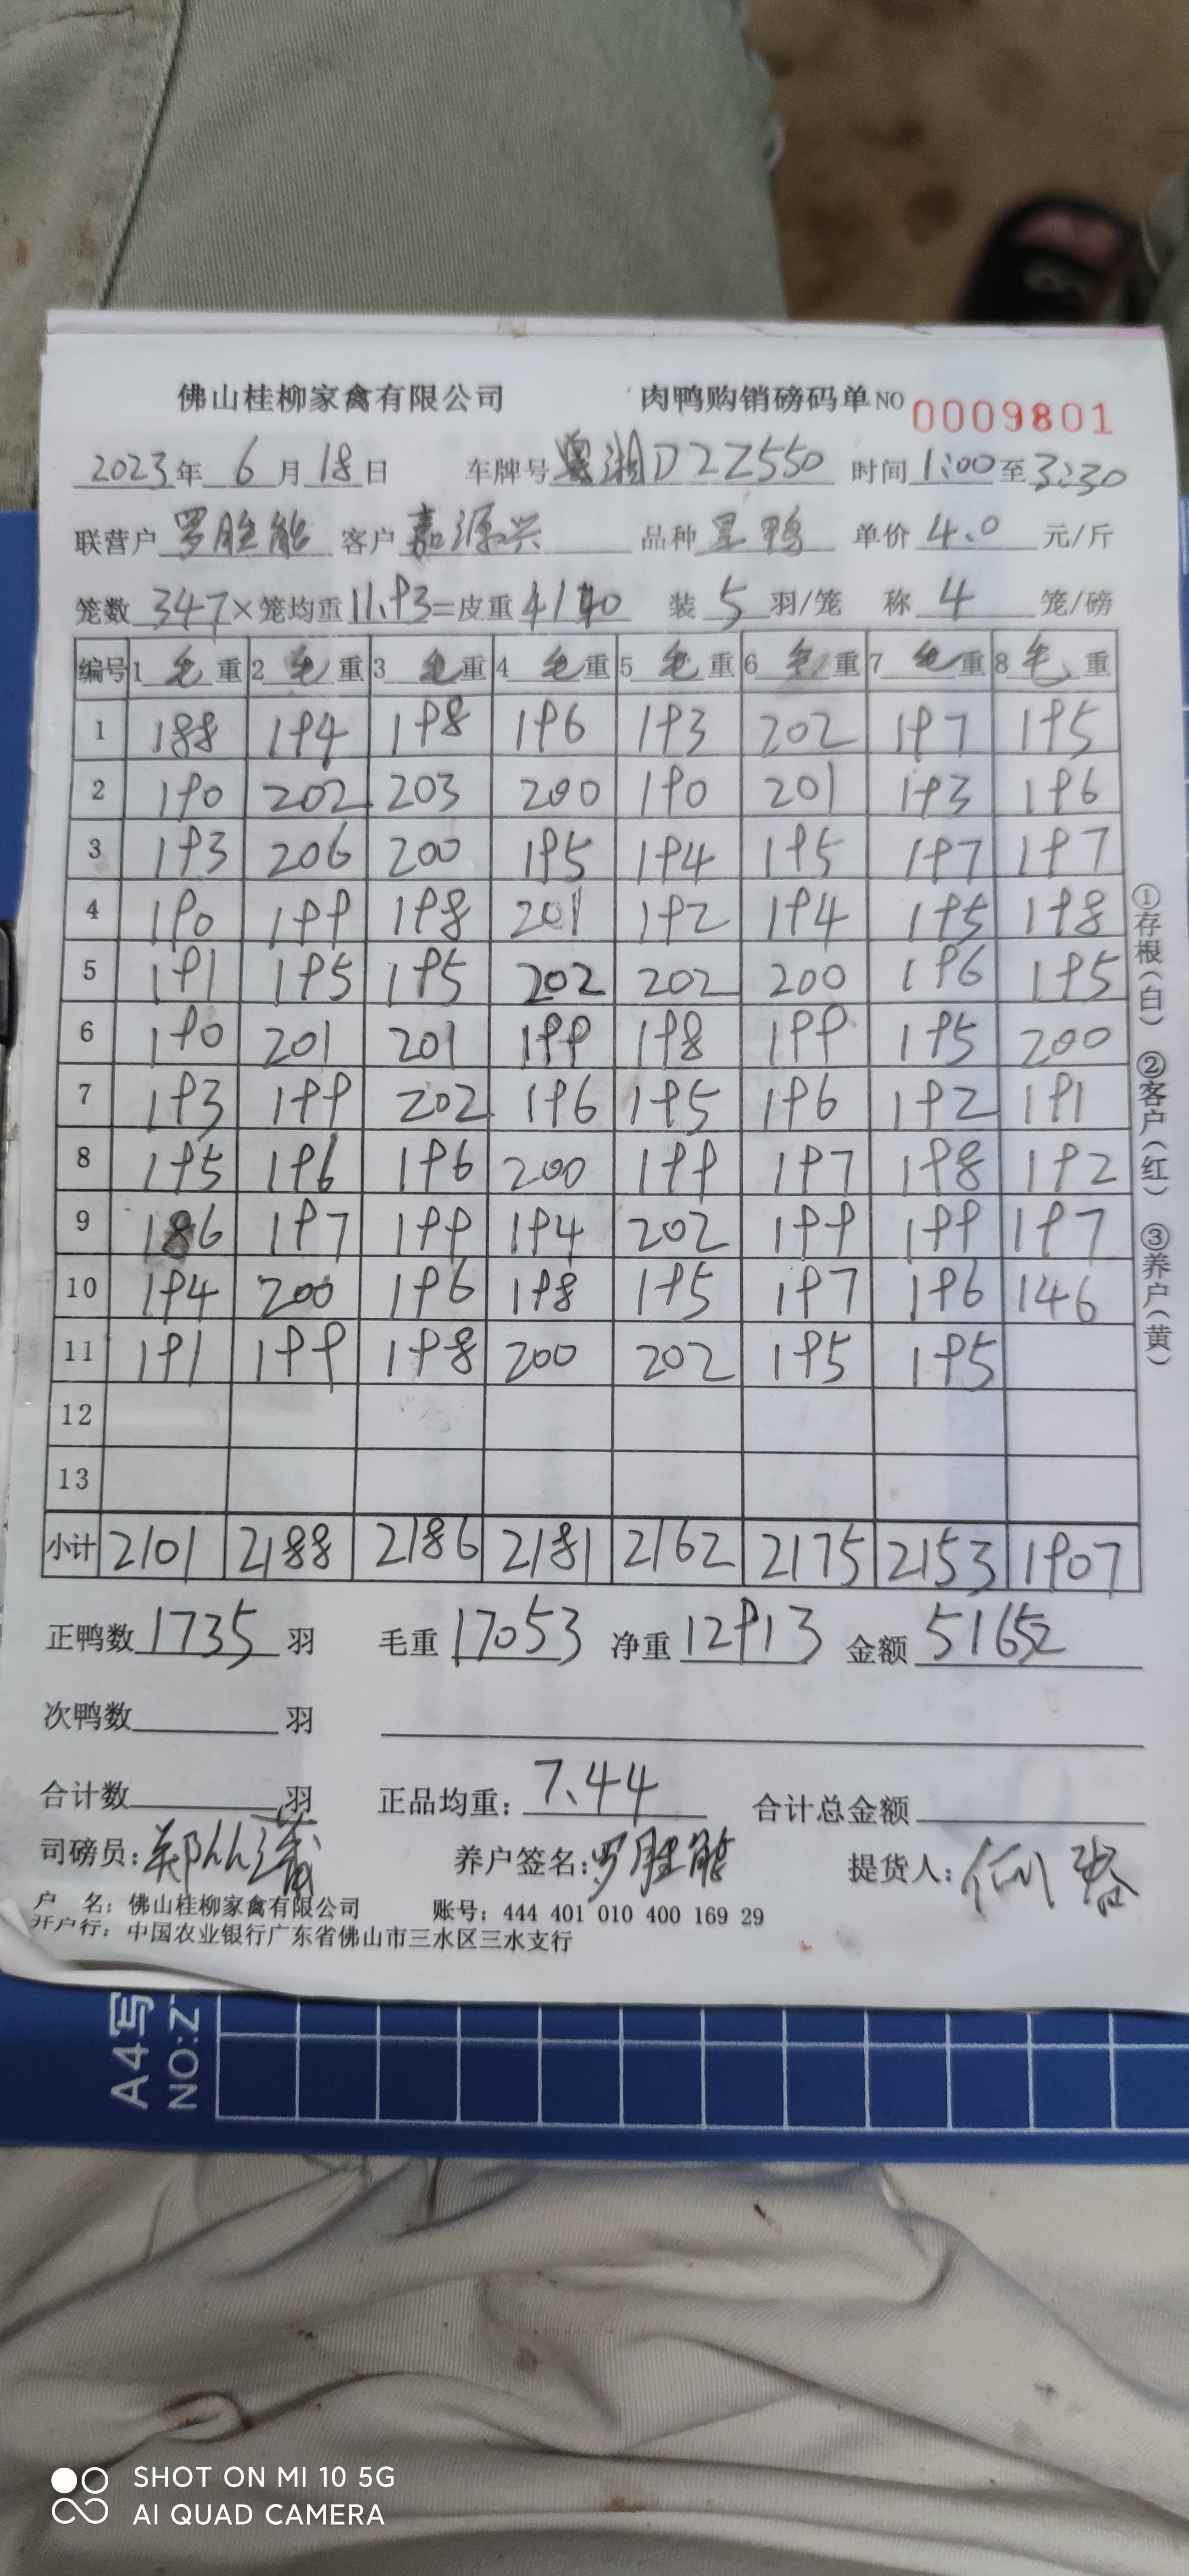 佛山桂柳家禽有限公司 肉鸭购销磅码单 NO 0009801
2023年 6月18日 车牌号 湘D2Z550 时间 1:00至3:30
联营户 罗胜能 客户 嘉源兴 品种 黑鸭 单价 4.0 元/斤
笼数 347×笼均重 11.93=皮重 4140 装 5 羽/笼 称 4 笼/磅
编号 1 毛重 2 毛重 3 毛重 4 毛重 5 毛重 6 毛重 7 毛重 8 毛重
1 188 194 198 196 193 202 197 195
2 190 202 203 200 190 201 193 196
3 193 206 200 195 194 195 197 197
4 190 199 198 201 192 194 195 198
5 191 195 195 202 202 200 196 195
6 190 201 201 199 198 199 195 200
7 193 199 202 196 195 196 192 191
8 195 196 196 200 199 197 198 192
9 186 197 199 194 202 199 199 197
10 194 200 196 198 195 197 196 146
11 191 199 198 200 202 195 195
12
13
小计 2101 2188 2186 2181 2162 2175 2153 1907
正鸭数 1735 羽 毛重 17053 净重 12913 金额 51652
次鸭数 羽
合计数 羽 正品均重: 7.44 合计总金额
司磅员: 郑 养户签名: 罗胜能 提货人: 何
户 名: 佛山桂柳家禽有限公司 账号: 444 401 010 400 169 29
开户行: 中国农业银行广东省佛山市三水区三水支行
①存根(白) ②客户(红) ③养户(黄)
A4写
NO:Z
SHOT ON MI 10 5G
AI QUAD CAMERA